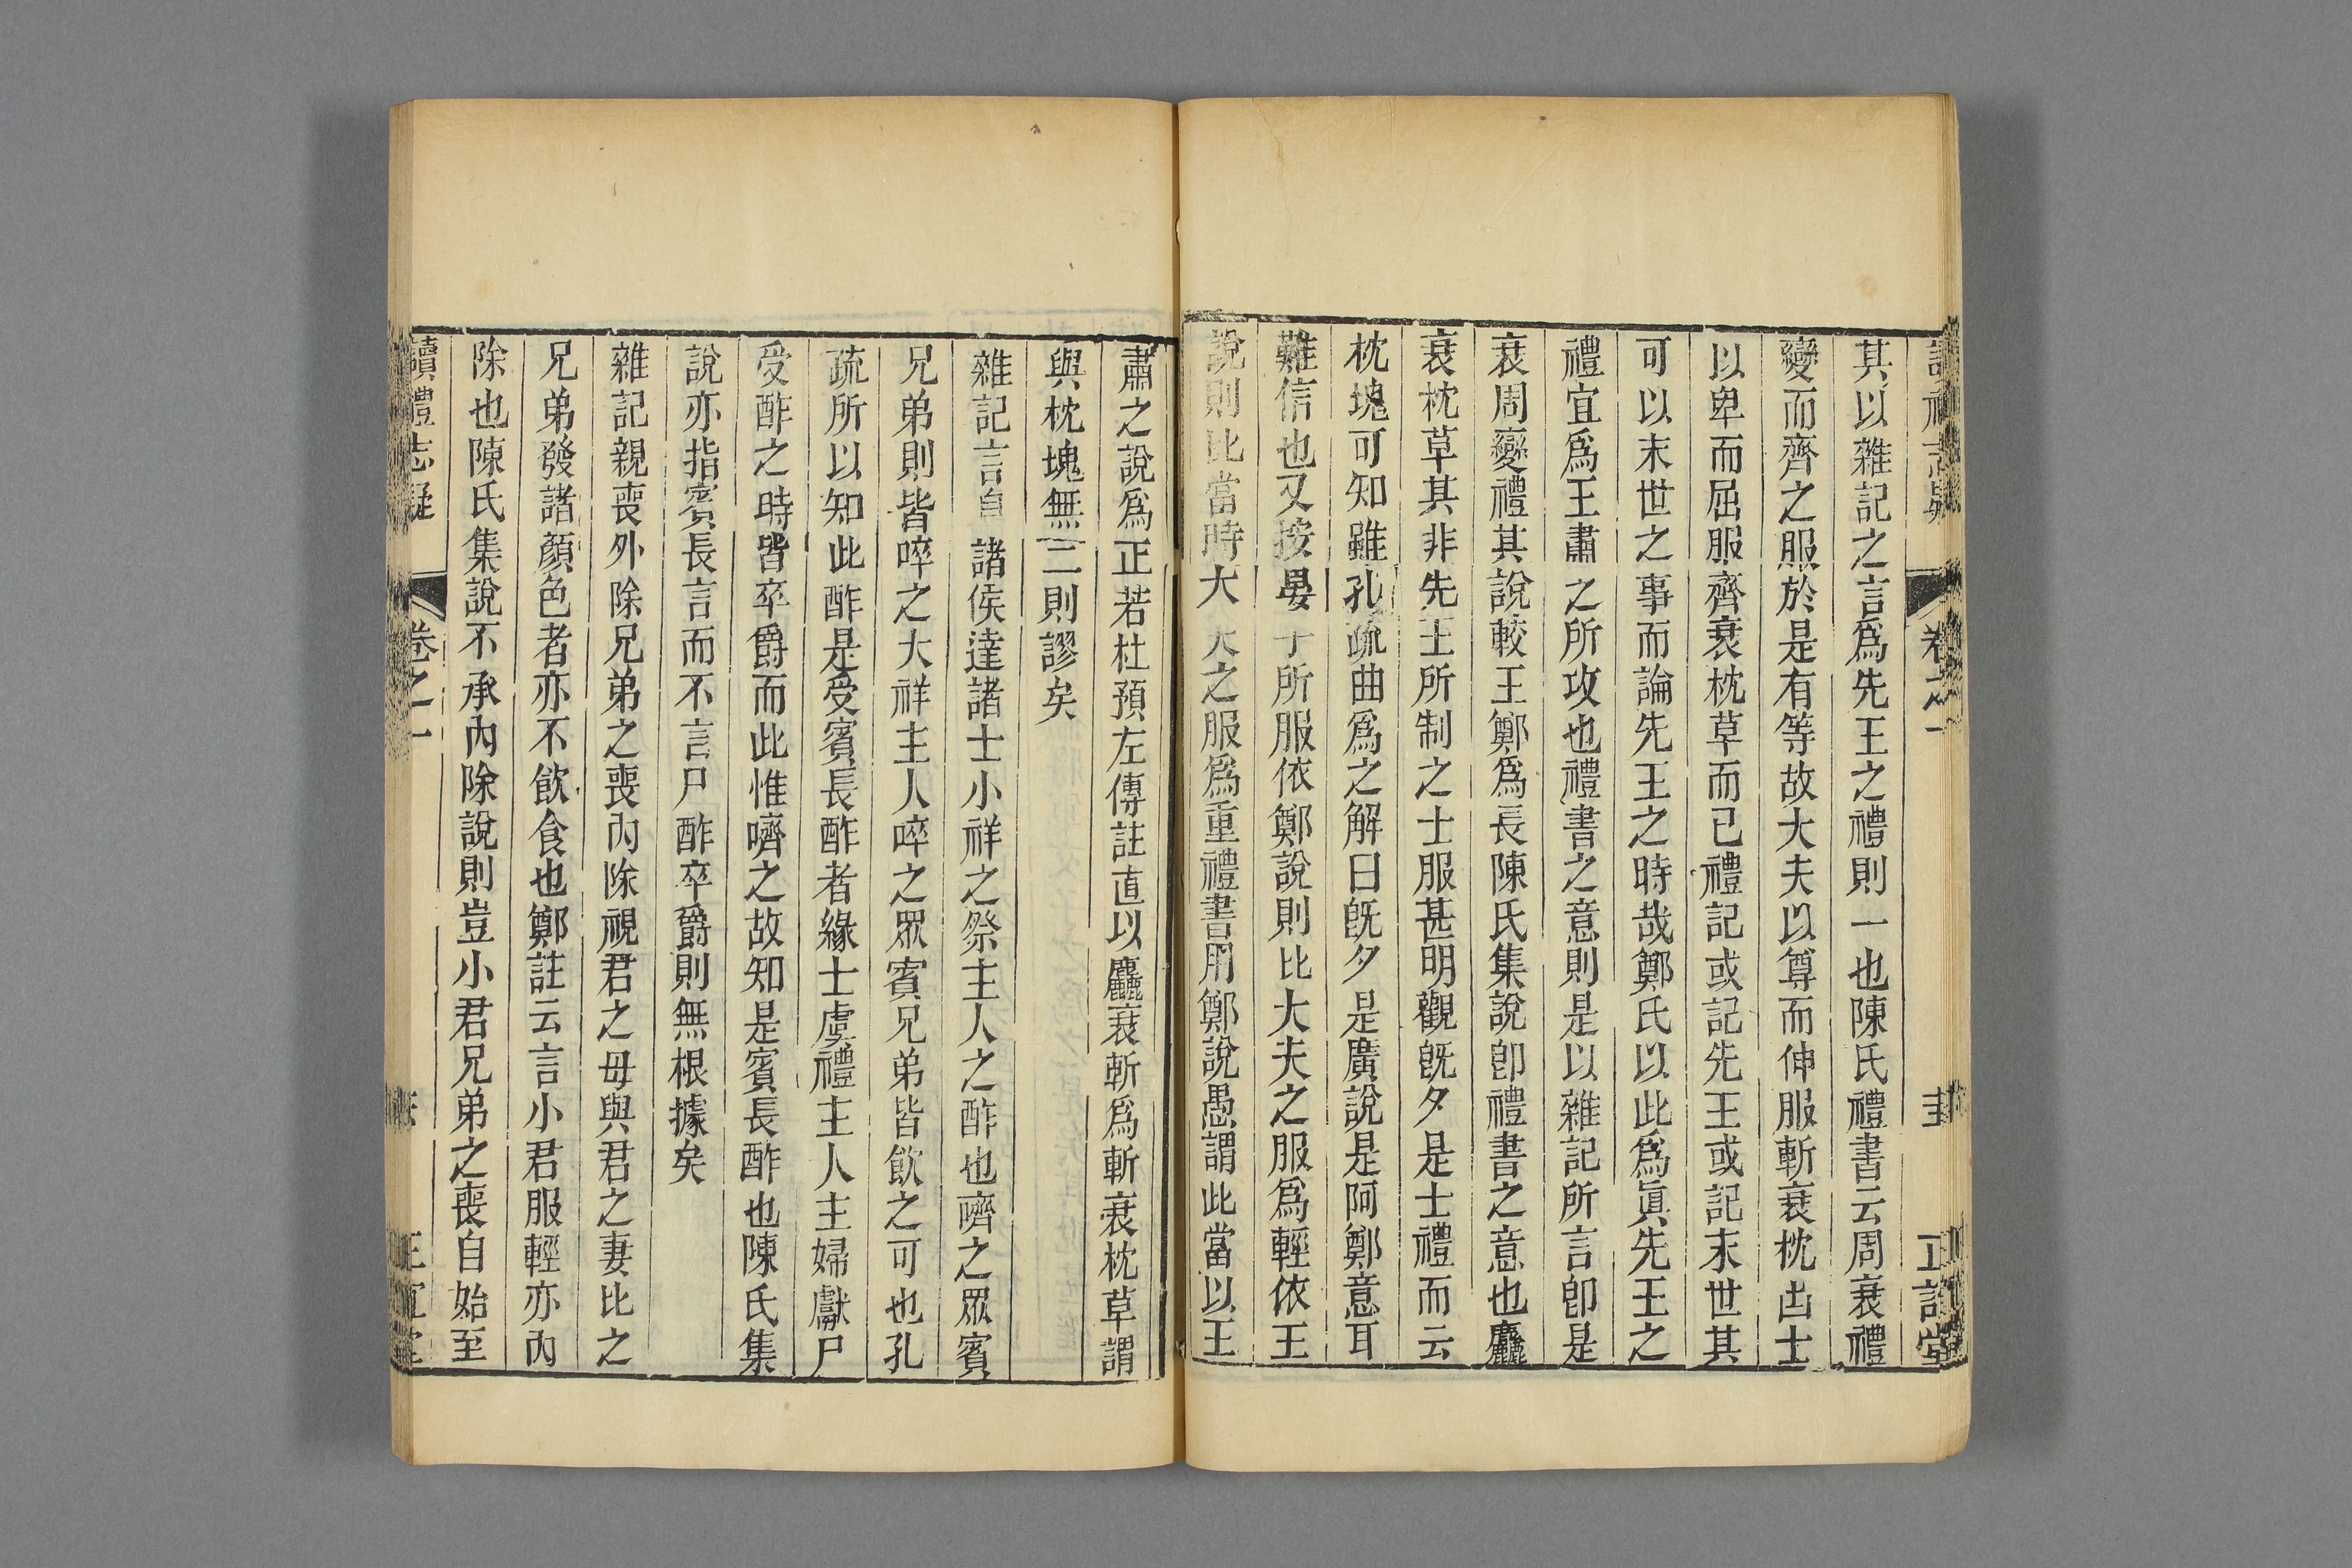 讀禮志疑 卷之一 正誼堂
其以雜記之言爲先王之禮則一也陳氏禮書云周衰禮
變而齊之服於是有等故大夫以尊而伸服斬衰枕凷士
以卑而屈服齊衰枕草而已禮記或記先王或記末世其
可以末世之事而論先王之時哉鄭氏以此爲眞先王之
禮宜爲王肅之所攻也禮書之意則是以雜記所言卽是
衰周變禮其說較王鄭爲長陳氏集說卽禮書之意也麤
衰枕草其非先王所制之士服甚明觀旣夕是士禮而云
枕塊可知雖孔疏曲爲之解曰旣夕是廣說是阿鄭意耳
難信也又按晏子所服依鄭說則比大夫之服爲輕依王
說則比當時大夫之服爲重禮書用鄭說愚謂此當以王
肅之說爲正若杜預左傳註直以麤衰斬爲斬衰枕草謂
與枕塊無二則謬矣
雜記言自諸侯達諸士小祥之祭主人之酢也嚌之眾賓
兄弟則皆啐之大祥主人啐之眾賓兄弟皆飲之可也孔
疏所以知此酢是受賓長酢者緣士虞禮主人主婦獻尸
受酢之時皆卒爵而此惟嚌之故知是賓長酢也陳氏集
說亦指賓長言而不言尸酢卒爵則無根據矣
雜記親喪外除兄弟之喪內除視君之母與君之妻比之
兄弟發諸顏色者亦不飲食也鄭註云言小君服輕亦內
除也陳氏集說不承內除說則豈小君兄弟之喪自始至
讀禮志疑 卷之一 正誼堂